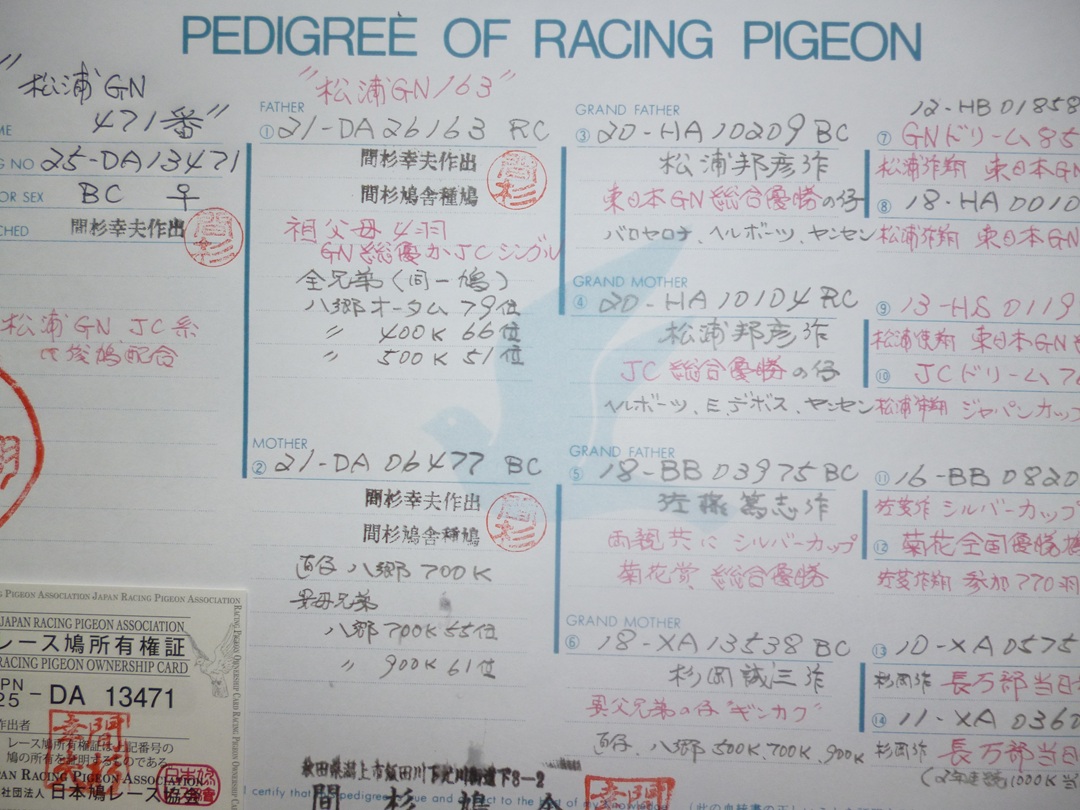 PEDIGREE OF RACING PIGEON
"松浦GN
471番"
NG NO 25-DA13471
OR SEX BC ♀
CHED 間杉幸夫作出
松浦GN JC系
配合
FATHER "松浦GN163"
① 21-DA26163 RC
間杉幸夫作出
間杉鳩舎種鳩
祖父母4羽
GN総優かJCシングル
全兄弟(同一鳩)
八郷オータム79位
〃 400K 66位
〃 500K 51位
MOTHER
② 21-DA06477 BC
間杉幸夫作出
間杉鳩舎種鳩
直仔 八郷700K
異母兄弟
八郷700K 55位
〃 900K 61位
GRAND FATHER
③ 20-HA10209 BC
松浦邦彦作
東日本GN総合優勝の仔
バロセロナ、ヘルボーツ、ヤンセン
GRAND MOTHER
④ 20-HA10104 RC
松浦邦彦作
JC総合優勝の仔
ヘルボーツ、E.デボス、ヤンセン
GRAND FATHER
⑤ 18-BB03975 BC
佐藤篤志作
両親共に シルバーカップ
菊花賞 総合優勝
GRAND MOTHER
⑥ 18-XA13538 BC
杉岡誠三作
異父兄弟の仔"ギンカク"
直仔、八郷500K、700K、900K
12-HB01858
⑦ GNドリーム85
松浦作翔 東日本GN
⑧ 18-HA0010
松浦作翔 東日本GN
⑨ 13-HS0119
東日本GN
⑩ JCドリーム7
ジャパンカップ
⑪ 16-BB0820
シルバーカップ
⑫ 菊花全国優勝
参加770羽
⑬ 10-XA0575
杉岡作 長万部当日
⑭ 11-XA0360
杉岡作 長万部当日
1000K当
PIGEON ASSOCIATION JAPAN RACING PIGEON ASSOCIATION
RACING PIGEON OWNERSHIP CARD
JAPAN RACING PIGEON ASSOCIATION
レース鳩所有権証
RACING PIGEON OWNERSHIP CARD
JPN
25 - DA 13471
作出者
レース鳩所有権証は上記番号の
鳩の所有を証明するものである
JAPAN RACING PIGEON ASSOCIATION
社団法人 日本鳩レース協会
秋田県潟上市飯田川下虻川街道下8-2
間杉鳩舎
I certify that this pedigree is true and correct to the best of my knowledge